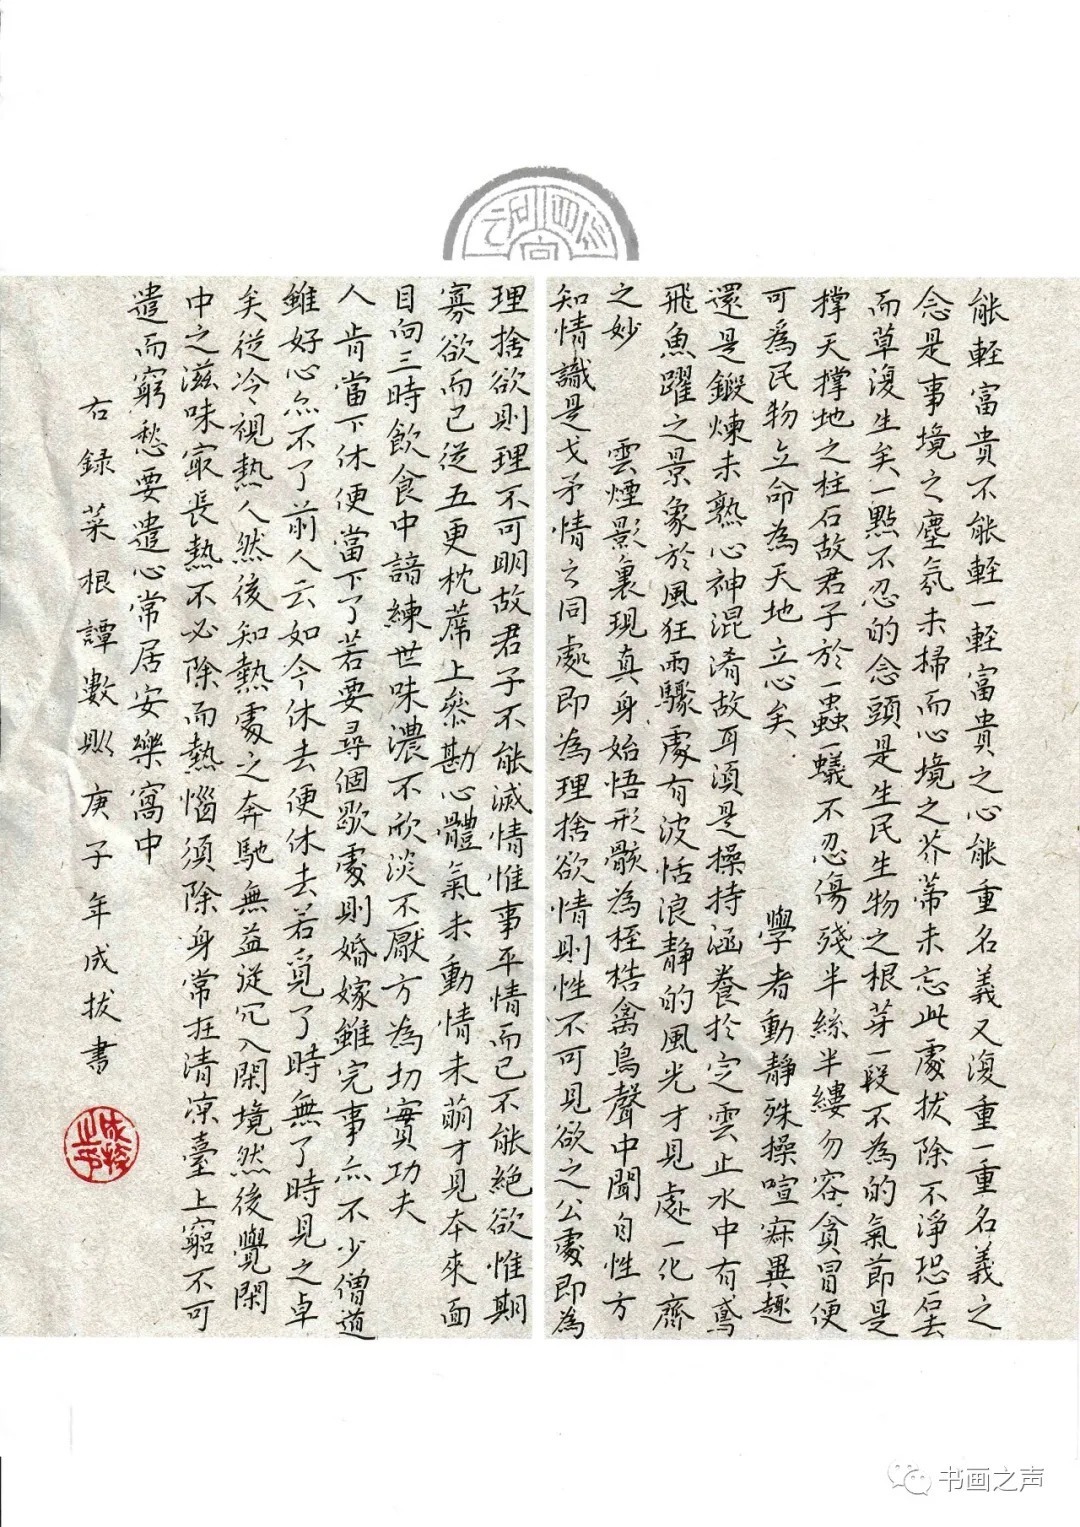 能輕富貴不能輕一輕富貴之心能重名義又復重一重名義之
念是事境之塵氛未掃而心境之芥蒂未忘此處拔除不淨恐石去
而草復生矣一點不忍的念頭是生民生物之根芽一段不為的氣節是
撑天撑地之柱石故君子於一蟲一蟻不忍傷殘半絲半縷勿容貪冒便
可為民物立命為天地立心矣 學者動靜殊操喧寂異趣
還是鍛煉未熟心神混淆故耳須是操持涵養於定雲止水中有鳶
飛魚躍之景象於風狂雨驟處有波恬浪靜的風光才見處一化齊
之妙 雲煙影裏現真身始悟形骸為桎梏禽鳥聲中聞自性方
知情識是戈矛情之同處即為理捨欲情則性不可見欲之公處即為
理捨欲則理不可明故君子不能滅情惟事平情而已不能絕欲惟期
寡欲而已從五更枕蓆上參勘心體氣未動情未萌才見本來面
目向三時飲食中諳練世味濃不欣淡不厭方為切實功夫
人肯當下休便當下了若要尋個歇處則婚嫁雖完事亦不少僧道
雖好心亦不了前人云如今休去便休去若覓了時無了時見之卓
矣從冷視熱人然後知熱處之奔馳無益從冗入閑境然後覺閑
中之滋味最長熱不必除而熱惱須除身常在清凉臺上窮不可
遣而窮愁要遣心常居安樂窩中
右錄菜根譚數則庚子年成拔書
成拔之印
书画之声